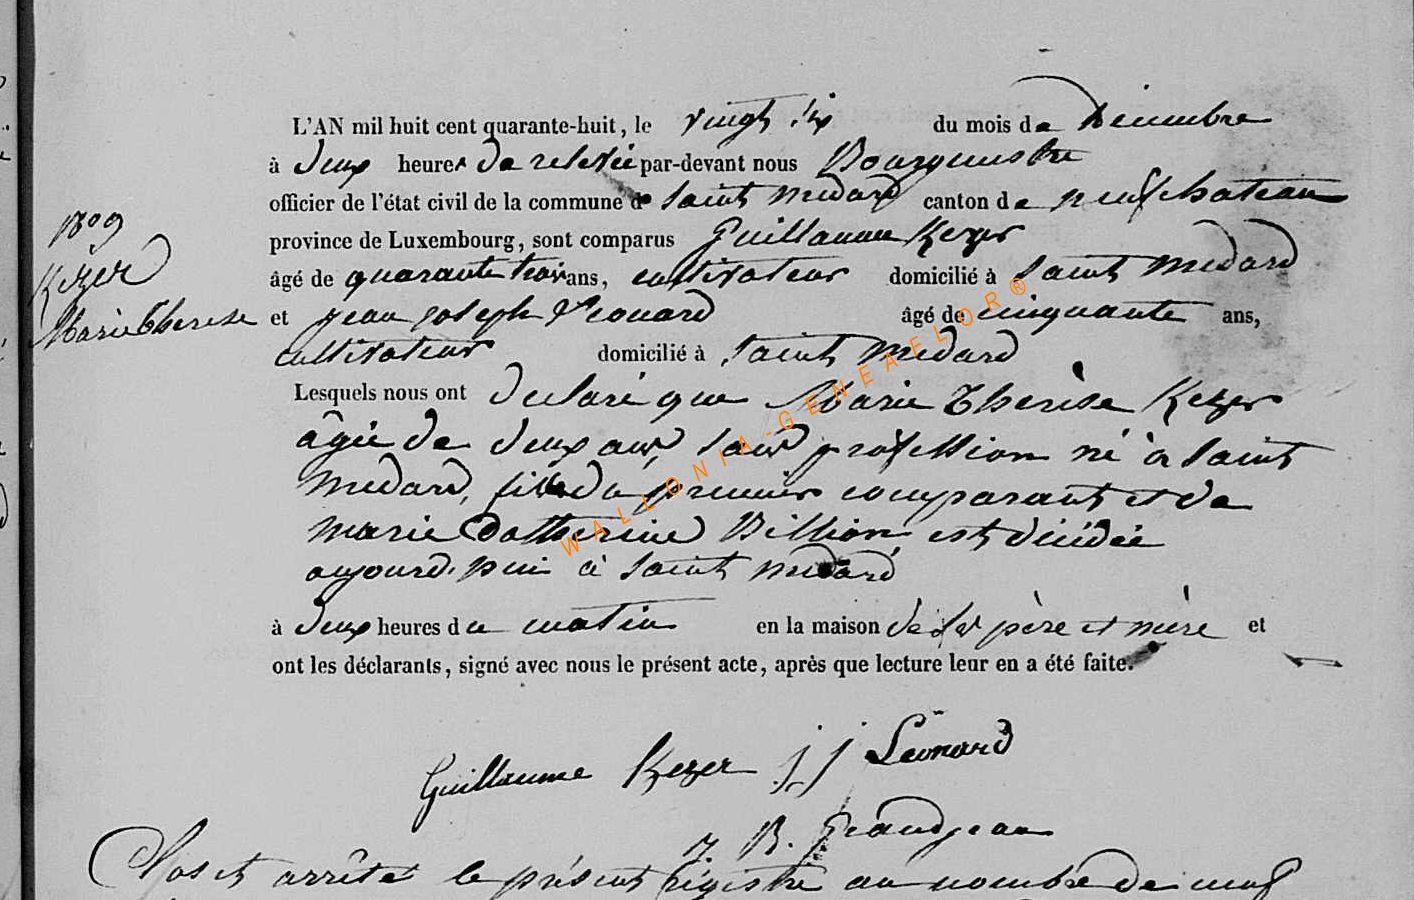 L'AN mil huit cent quarante-huit, le vingt six du mois de Décembre
à deux heures de relevée par-devant nous Bourgmestre
officier de l'état civil de la commune de Saint Médard canton de neufchateau
province de Luxembourg, sont comparus Guillaume Kezer
âgé de quarante trois ans, cultivateur domicilié à Saint Médard
et jean joseph Léonard âgé de cinquante ans,
cultivateur domicilié à Saint Médard
Lesquels nous ont déclaré que Marie Thérèse Kezer
âgée de deux ans sans profession né à Saint
Médard, fille du premier comparant et de
marie Catherine Billion, est décédée
aujourd'hui à Saint Médard
à deux heures du matin en la maison de ses père et mère et
ont les déclarants, signé avec nous le présent acte, après que lecture leur en a été faite.
1809
Kezer
Marie Therese
Guillaume Kezer j j Léonard
J. B. Grandjean
Clos et arrêté le présent régistre au nombre de neuf
WALLONIA-GENEAFLOR®